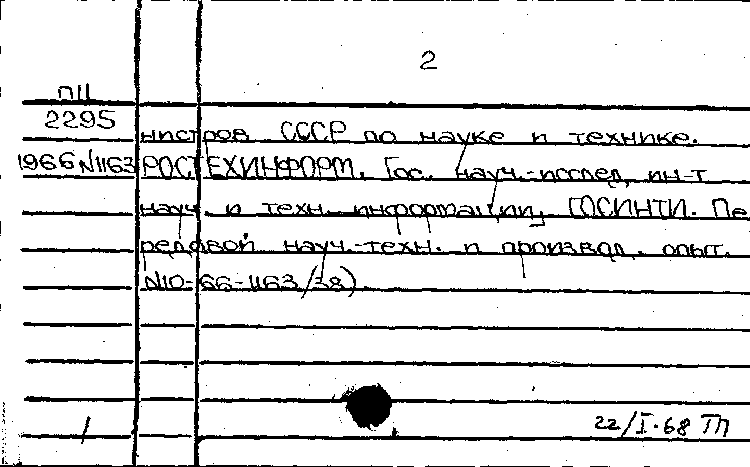 2
П11
2295
нистров СССР по науке и технике.
1966 N1163 РОСТЕХИНФОРМ. Гос. науч.-исслед. ин-т
науч. и техн. информации, ГОСИНТИ. Пе
редовой науч.-техн. и производ. опыт.
N10-66-1163/38).
22/I-68 ТП